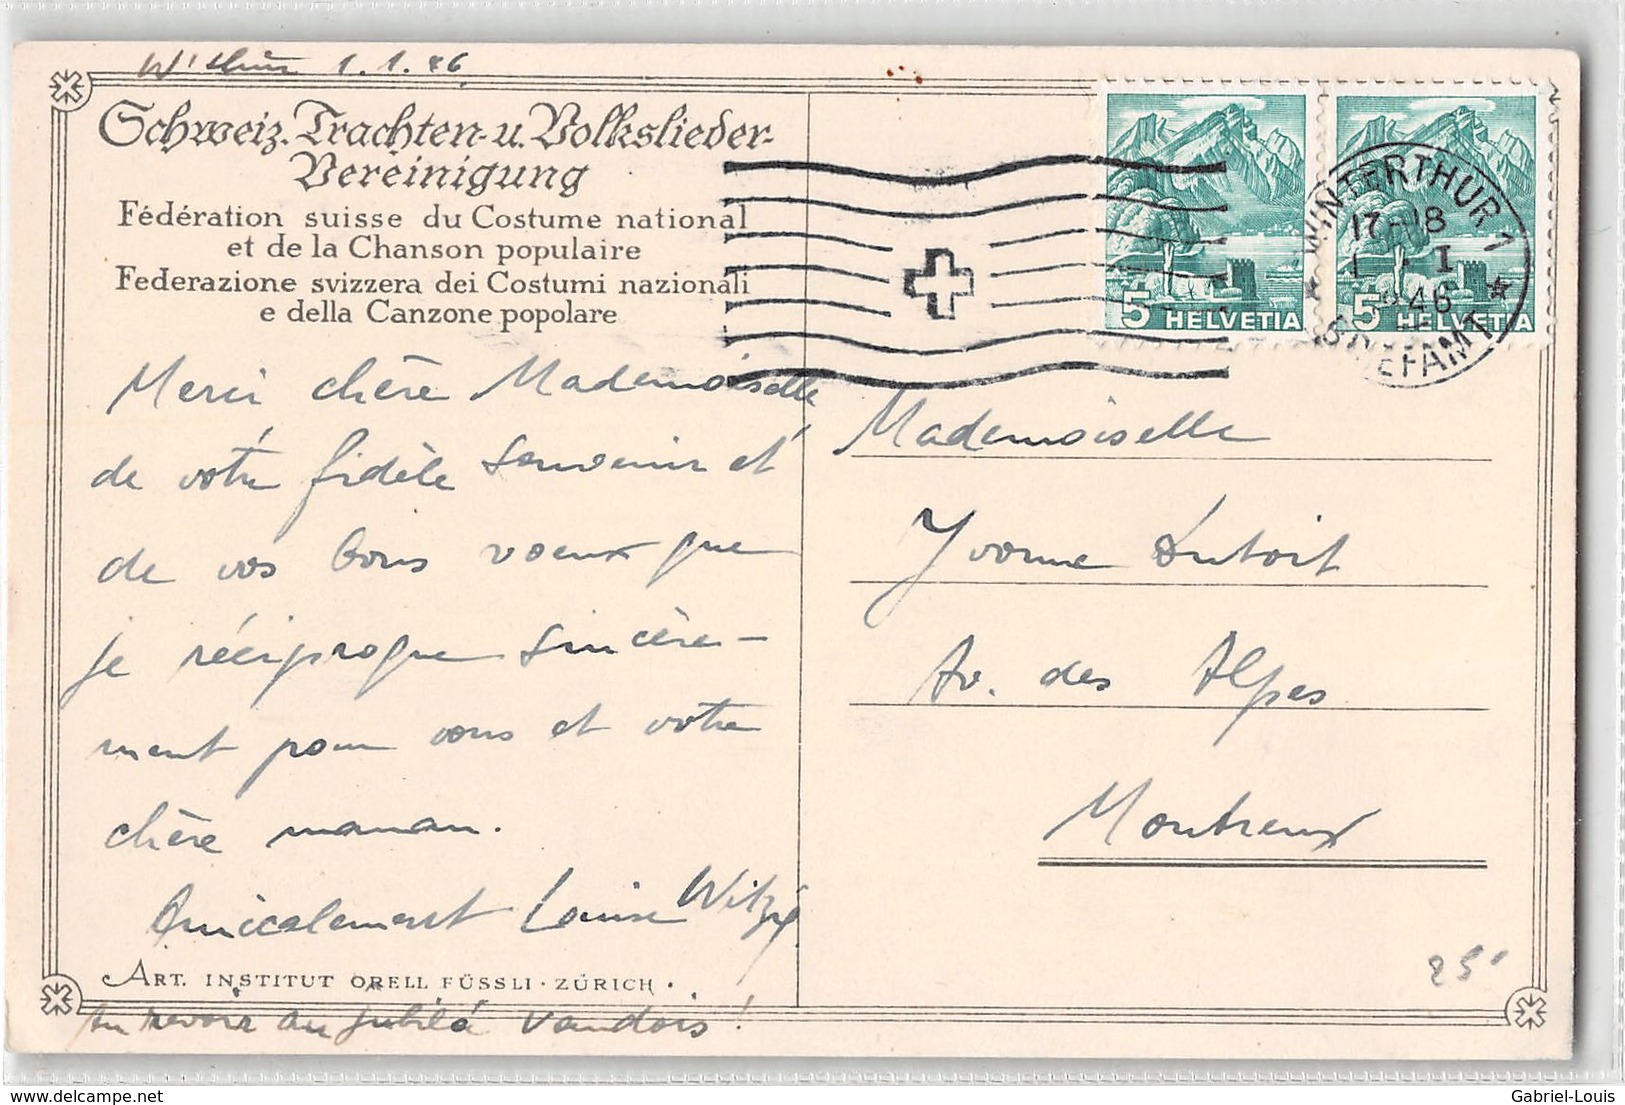 W'thur 1.1.46
Schweiz. Trachten- u. Volkslieder-
Vereinigung
Fédération suisse du Costume national
et de la Chanson populaire
Federazione svizzera dei Costumi nazionali
e della Canzone popolare
Merci chère Mademoiselle
de votre fidèle souvenir et
de vos bons voeux que
je réciproque sincère-
ment pour vous et votre
chère maman.
Amicalement Louise
ART. INSTITUT ORELL FÜSSLI · ZÜRICH ·
Au revoir au jubilé vaudois!
5 HELVETIA
5 HELVETIA
WINTERTHUR 1
17-18
1 · I
46
BRIEFAMT
Mademoiselle
Yvonne Dutoit
Av. des Alpes
Montreux
25'
Gabriel-Louis
delcampe.com